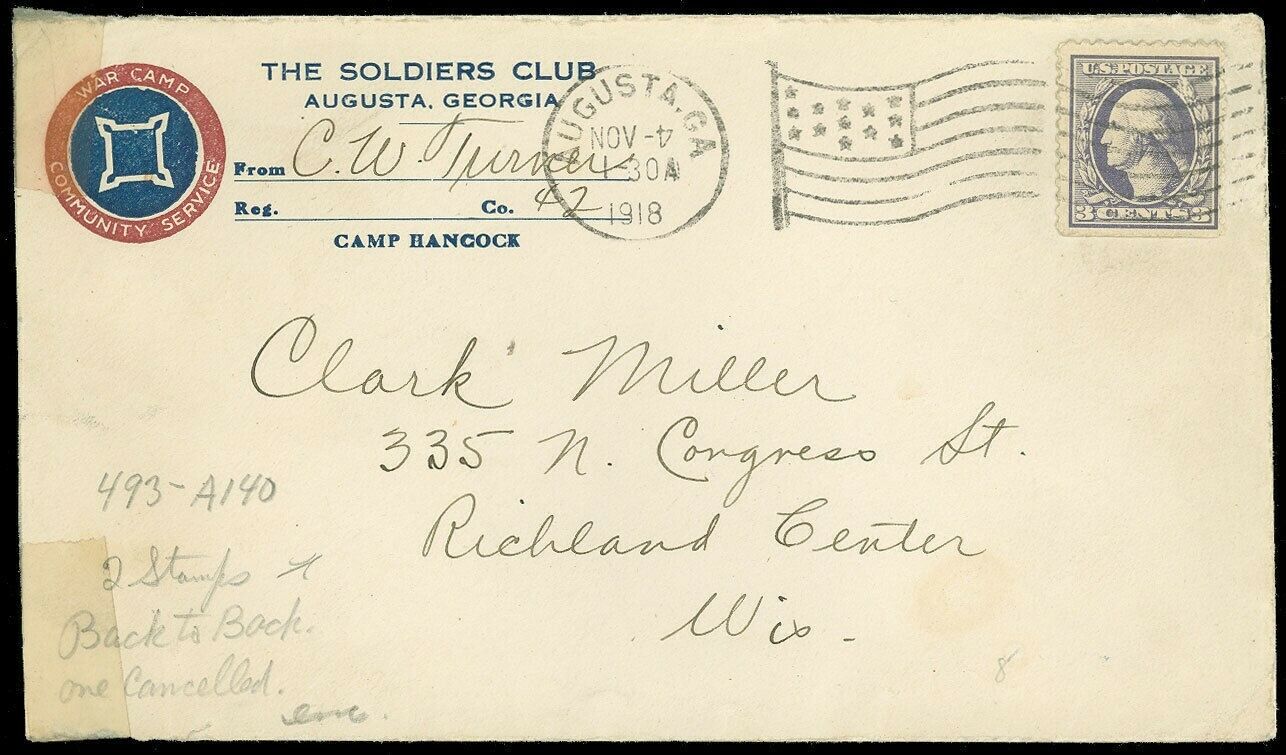 WAR CAMP
COMMUNITY SERVICE
THE SOLDIERS CLUB
AUGUSTA, GEORGIA
From C. W. Turner
Reg. Co. 42
CAMP HANCOCK
AUGUSTA, GA
NOV -4
1-30A
1918
U.S. POSTAGE
3 CENTS 3
Clark Miller
335 N. Congress St.
Richland Center
Wis.
493-A140
2 Stamps
Back to Back.
one Cancelled.
8